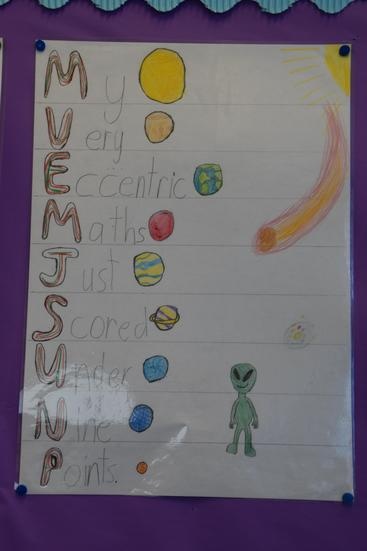 My
Very
Eccentric
Maths
Just
Scored
Under
Nine
Points.